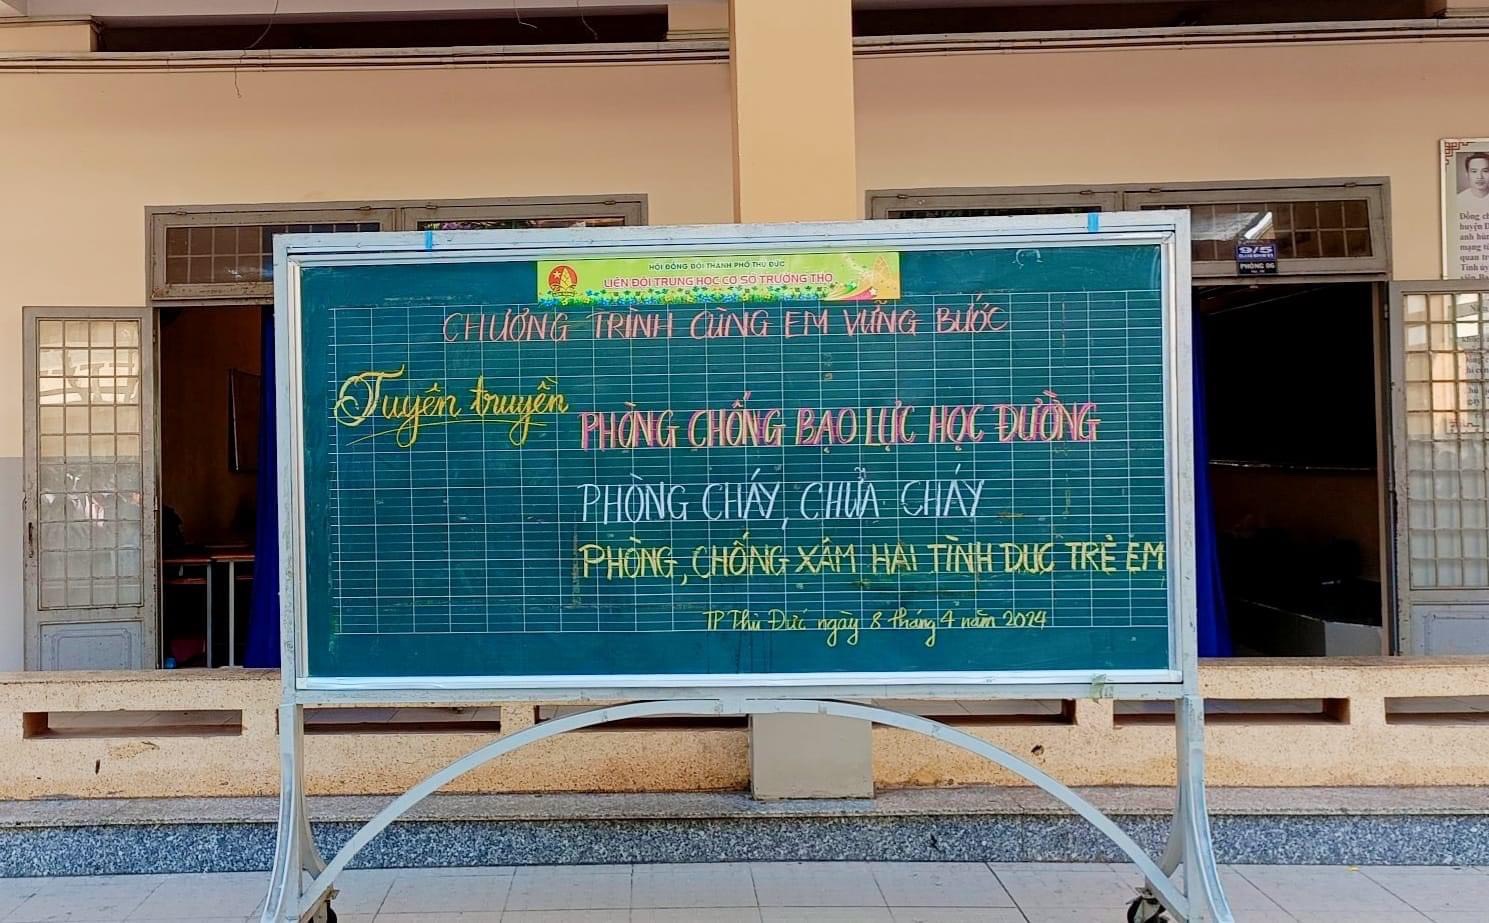 HỘI ĐỒNG ĐỘI THÀNH PHỐ THỦ ĐỨC
LIÊN ĐỘI TRUNG HỌC CƠ SỞ TRƯỜNG THỌ
CHƯƠNG TRÌNH CÙNG EM VỮNG BƯỚC
Tuyên truyền
PHÒNG CHỐNG BẠO LỰC HỌC ĐƯỜNG
PHÒNG CHÁY, CHỮA CHÁY
PHÒNG, CHỐNG XÂM HẠI TÌNH DỤC TRẺ EM
TP Thủ Đức ngày 8 tháng 4 năm 2024
9/5
PHÒNG 06
Đồng ch
huyện D
anh hù
mạng t
quan tr
Tỉnh ủy